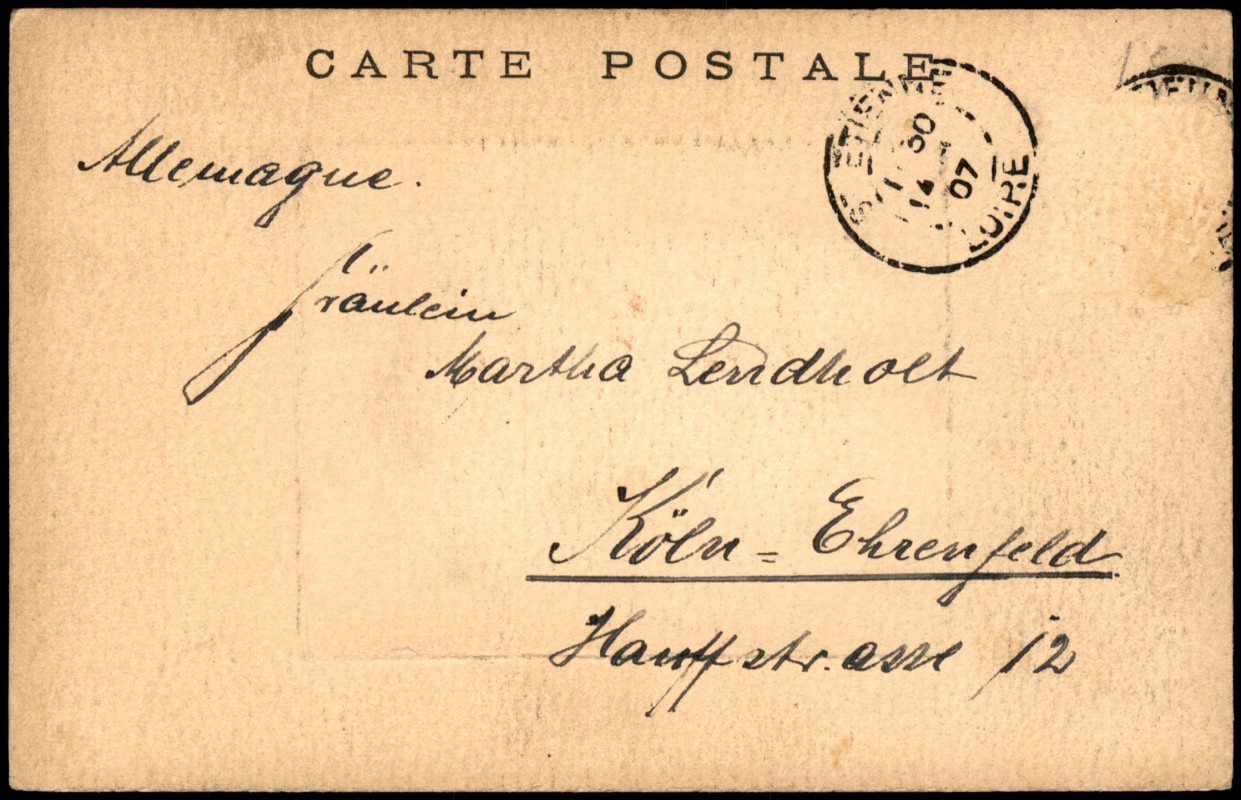 CARTE POSTALE
ST ETIENNE
30
14
07
LOIRE
Allemagne.
Fräulein
Martha Lendholt
Köln = Ehrenfeld
Hauffstrasse 12